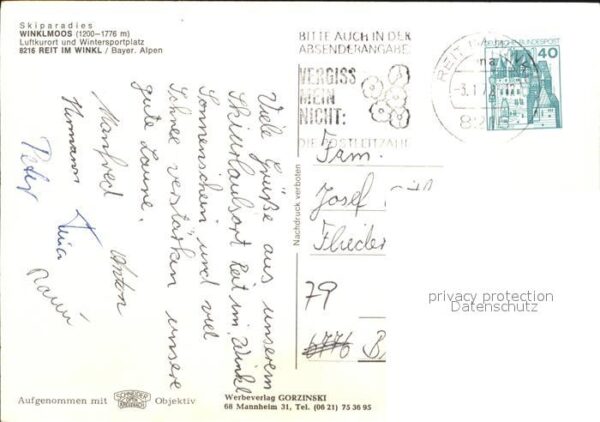 Skiparadies
WINKLMOOS (1200–1776 m)
Luftkurort und Wintersportplatz
8216 REIT IM WINKL / Bayer. Alpen
BITTE AUCH IN DER
ABSENDERANGABE:
VERGISS
MEIN
NICHT:
DIE POSTLEITZAHL
REIT IM WINKL
8216
DEUTSCHE BUNDESPOST
40
Viele Grüße aus unserem
Skiurlaubsort Reit im Winkl
Sonnenschein und viel
Schnee verstärken unsere
gute Laune.
Manfred Anton
Hermann
Peter
Nachdruck verboten
Fam.
Josef
Flieder
79
6776 B
privacy protection
Datenschutz
Aufgenommen mit SCHNEIDER KREUZNACH Objektiv
Werbeverlag GORZINSKI
68 Mannheim 31, Tel. (06 21) 75 36 95